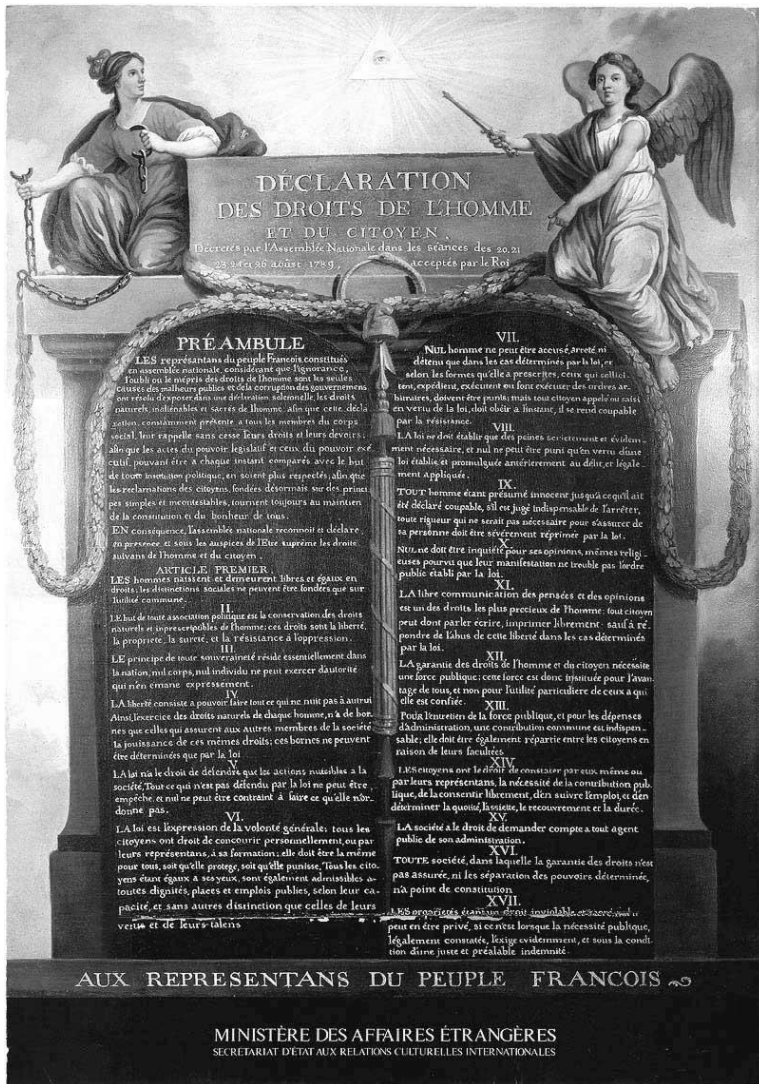 DÉCLARATION
DES DROITS DE L'HOMME
ET DU CITOYEN,
Décretés par l'Assemblée Nationale dans les séances des 20, 21
23, 24 et 26 août 1789, acceptés par le Roi
PRÉAMBULE
LES représantans du peuple François, constitués
en assemblée nationale, considérant que l'ignorance,
l'oubli ou le mépris des droits de l'homme sont les seules
causes des malheurs publics et de la corruption des gouvernemens
ont résolu d'exposer dans une déclaration solemnelle, les droits
naturels, inaliénables et sacrés de l'homme, afin que cette décla
ration, constamment présente a tous les membres du corps
social, leur rappelle sans cesse leurs droits et leurs devoirs;
afin que les actes du pouvoir législatif et ceux du pouvoir exé
cutif, pouvant être a chaque instant comparés avec le but
de toute institution politique, en soient plus respectés; afin que
les reclamations des citoyens, fondées désormais sur des princi
pes simples et incontestables, tournent toujours au maintien
de la constitution et du bonheur de tous.
EN conséquence, l'assemblée nationale reconnoit et déclare,
en présence et sous les auspices de l'Etre suprême les droits
suivans de l'homme et du citoyen.
ARTICLE PREMIER.
LES hommes naissent et demeurent libres et égaux en
droits; les distinctions sociales ne peuvent être fondées que sur
l'utilité commune.
II.
LE but de toute association politique est la conservation des droits
naturels et inprescriptibles de l'homme; ces droits sont la liberté,
la propriété, la sureté, et la résistance à l'oppression.
III.
LE principe de toute souveraineté réside essentiellement dans
la nation, nul corps, nul individu ne peut exercer d'autorité
qui n'en émane expressement.
IV.
LA liberté consiste a pouvoir faire tout ce qui ne nuit pas à autrui
Ainsi, l'exercice des droits naturels de chaque homme, n'a de bor
nes que celles qui assurent aux autres membres de la société
la jouissance de ces mêmes droits; ces bornes ne peuvent
être déterminées que par la loi
V.
LA loi n'a le droit de défendre que les actions nuisibles a la
société. Tout ce qui n'est pas défendu par la loi ne peut être
empêche, et nul ne peut être contraint à faire ce qu'elle n'or-
donne pas.
VI.
LA loi est l'expression de la volonté générale; tous les
citoyens ont droit de concourir personnellement, ou par
leurs représentans, à sa formation; elle doit être la même
pour tous, soit qu'elle protege, soit qu'elle punisse. Tous les cito
yens étant égaux a ses yeux, sont également admissibles a
toutes dignités, places et emplois publics, selon leur ca-
pacité, et sans autres distinction que celles de leurs
vertus et de leurs talens
VII.
NUL homme ne peut être accusé, arreté, ni
détenu que dans les cas déterminés par la loi, et
selon les formes qu'elle a prescrites, ceux qui sollici-
tent, expédient, exécutent ou font exécuter des ordres ar-
bitraires, doivent être punis; mais tout citoyen appelé ou saisi
en vertu de la loi, doit obéir a l'instant, il se rend coupable
par la résistance.
VIII.
LA loi ne doit établir que des peines strictement et évidem-
ment nécessaire, et nul ne peut être puni qu'en vertu d'une
loi établie et promulguée antérierement au délit, et légale-
ment appliquée.
IX.
TOUT homme étant présumé innocent jusqu'a ce qu'il ait
été déclaré coupable, s'il est jugé indispensable de l'arrêter,
toute rigueur qui ne serait pas nécessaire pour s'assurer de
sa personne doit être sévèrement réprimer par la loi.
X.
NUL ne doit être inquiété pour ses opinions, mêmes religi-
euses pourvu que leur manifestation ne trouble pas l'ordre
public établi par la loi.
XI.
LA libre communication des pensées et des opinions
est un des droits les plus precieux de l'homme; tout citoyen
peut dont parler écrire, imprimer librement: sauf a ré-
pondre de l'abus de cette liberté dans les cas déterminés
par la loi.
XII.
LA garantie des droits de l'homme et du citoyen nécessite
une force publique; cette force est donc instituée pour l'avan-
tage de tous, et non pour l'utilité particulière de ceux a qui
elle est confiée.
XIII.
POUR l'entretien de la force publique, et pour les dépenses
d'administration, une contribution commune est indispen-
sable; elle doit être également répartie entre les citoyens en
raison de leurs facultées
XIV.
LES citoyens ont le droit de constater par eux même ou
par leurs représentans, la nécessité de la contribution pub-
lique, de la consentir librement, d'en suivre l'emploi, et d'en
déterminer la quotité, l'assiette, le recouvrement et la durée.
XV.
LA société a le droit de demander compte a tout agent
public de son administration.
XVI.
TOUTE société, dans laquelle la garantie des droits n'est
pas assurée, ni les séparation des pouvoirs déterminée,
n'a point de constitution
XVII.
LES propriétés étant un droit inviolable et sacré, nul ne
peut en être privé, si ce n'est lorsque la nécessité publique,
légalement constatée, l'exige evidemment, et sous la condi-
tion d'une juste et préalable indemnité.
AUX REPRESENTANS DU PEUPLE FRANCOIS
MINISTÈRE DES AFFAIRES ÉTRANGÈRES
SECRETARIAT D'ÉTAT AUX RELATIONS CULTURELLES INTERNATIONALES